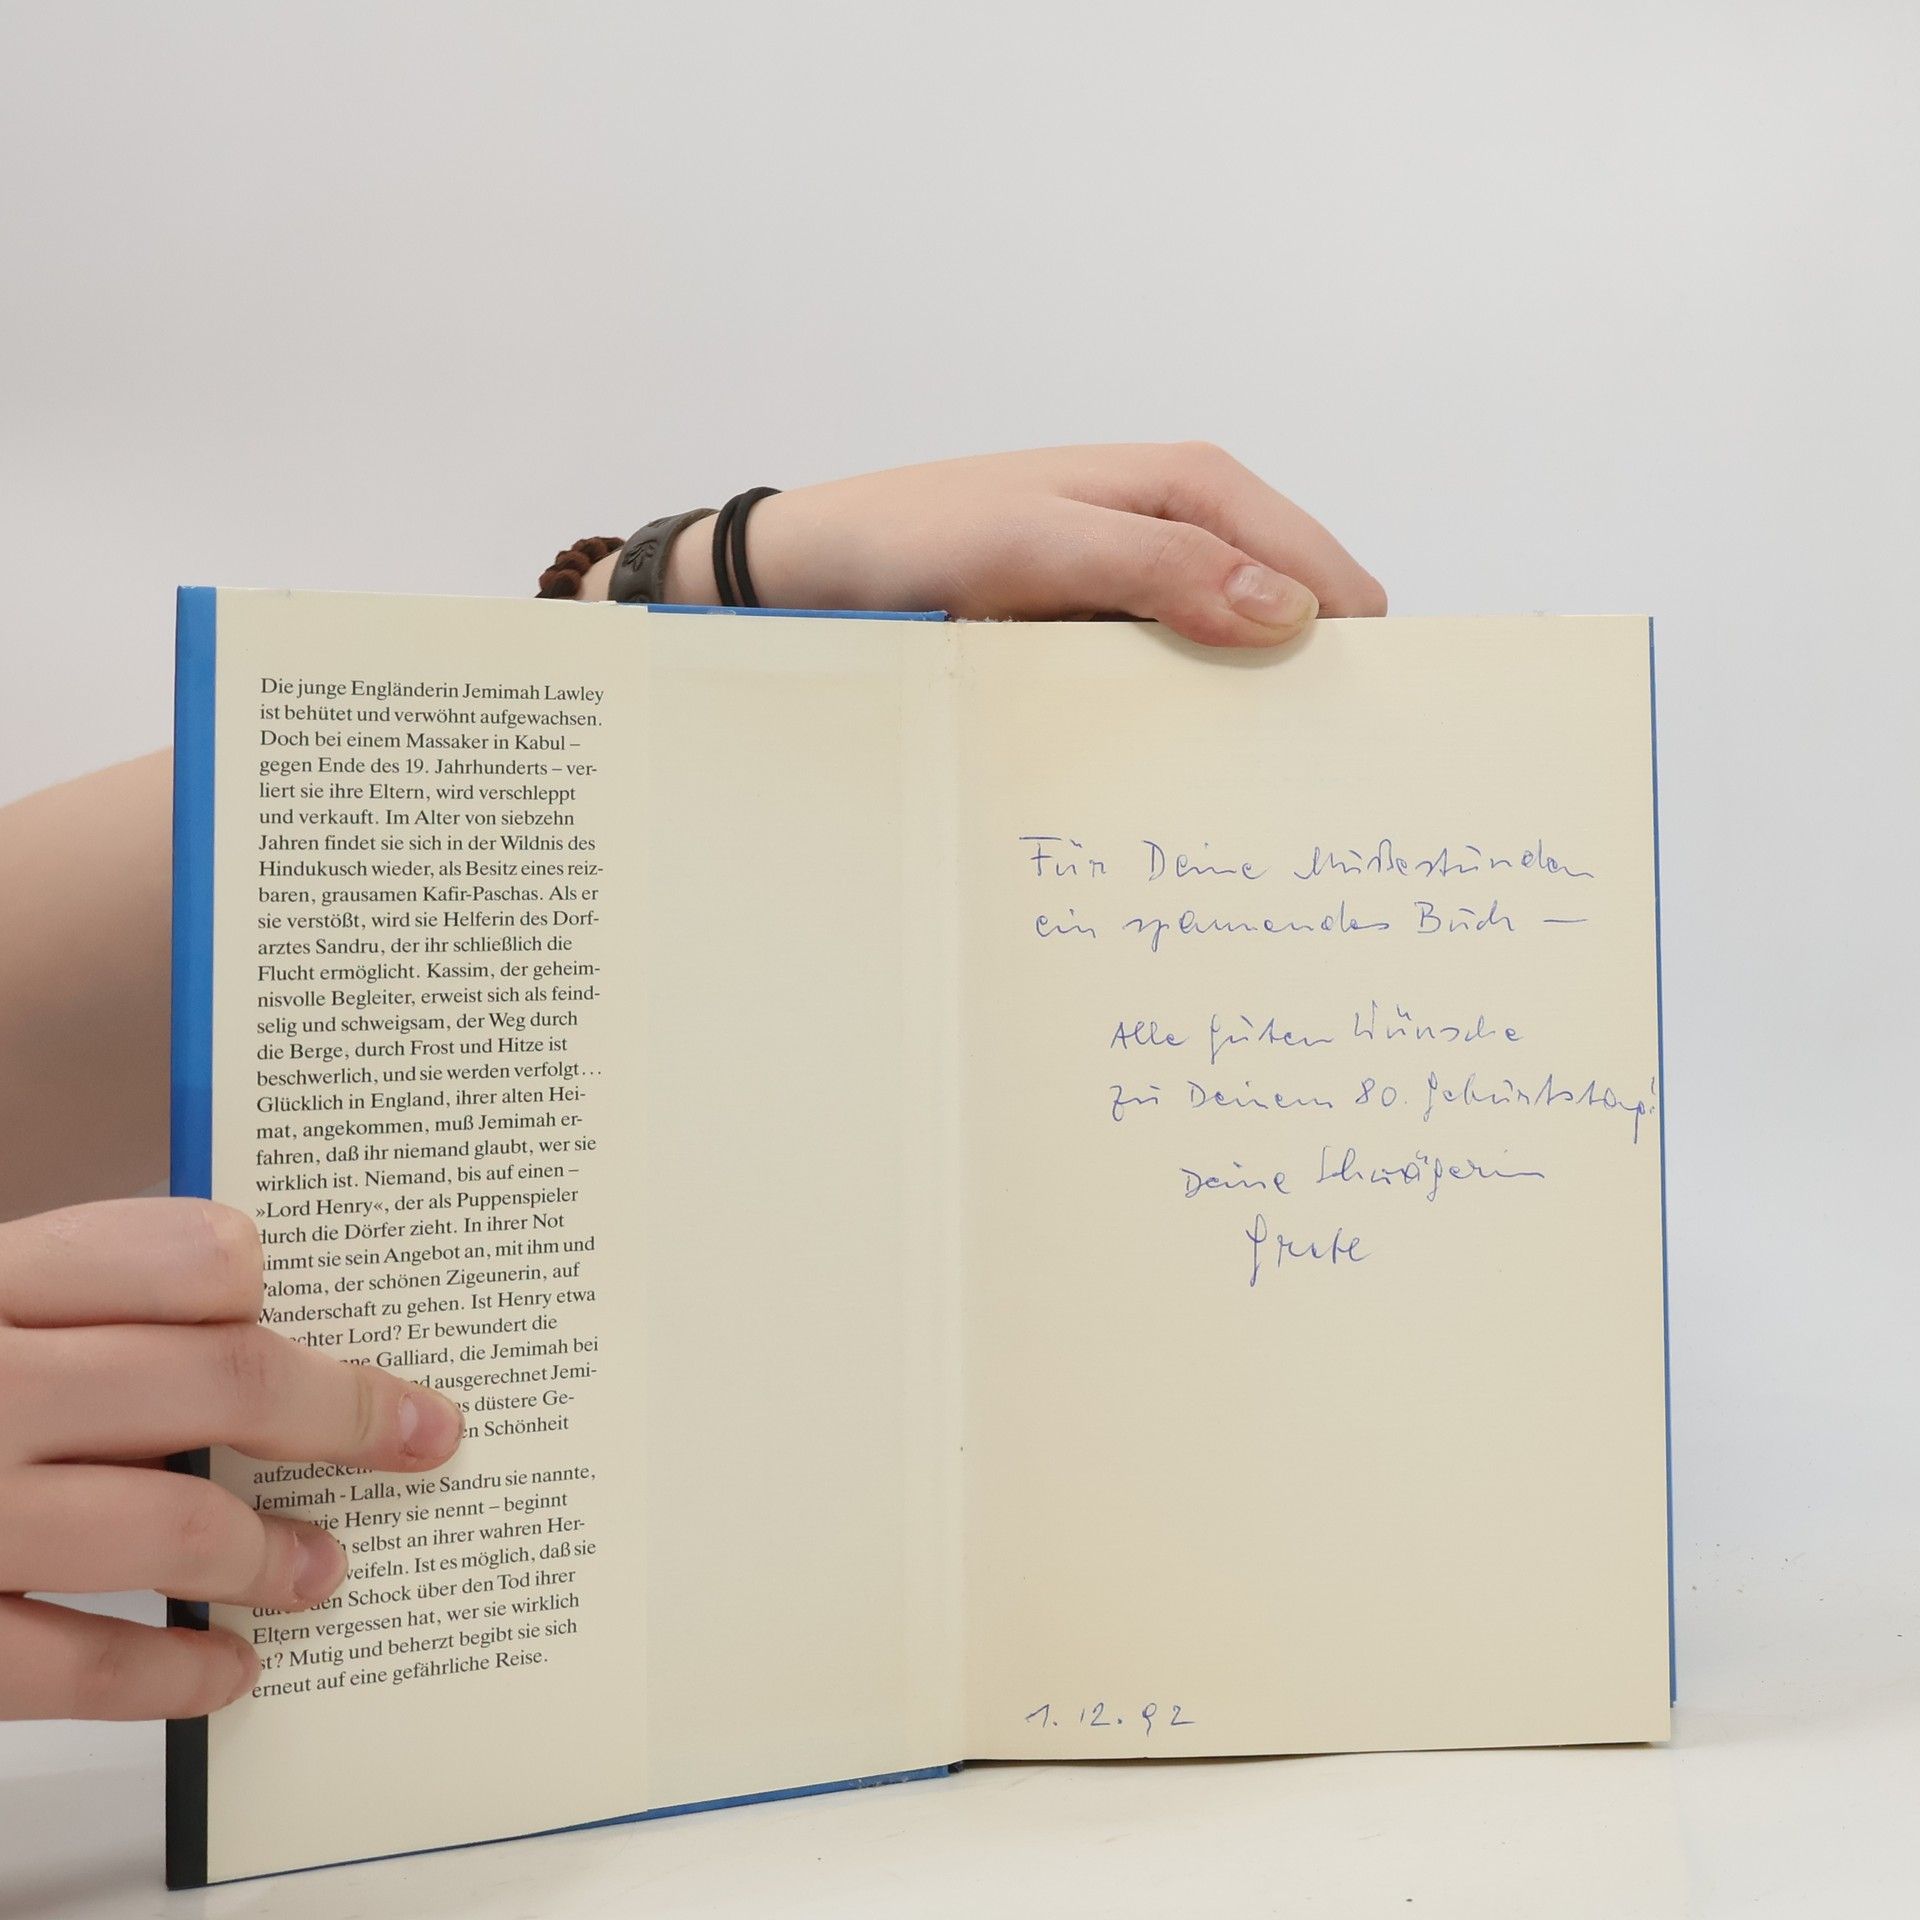 Die junge Engländerin Jemimah Lawley
ist behütet und verwöhnt aufgewachsen.
Doch bei einem Massaker in Kabul –
gegen Ende des 19. Jahrhunderts – ver-
liert sie ihre Eltern, wird verschleppt
und verkauft. Im Alter von siebzehn
Jahren findet sie sich in der Wildnis des
Hindukusch wieder, als Besitz eines reiz-
baren, grausamen Kafir-Paschas. Als er
sie verstößt, wird sie Helferin des Dorf-
arztes Sandru, der ihr schließlich die
Flucht ermöglicht. Kassim, der geheim-
nisvolle Begleiter, erweist sich als feind-
selig und schweigsam, der Weg durch
die Berge, durch Frost und Hitze ist
beschwerlich, und sie werden verfolgt...
Glücklich in England, ihrer alten Hei-
mat, angekommen, muß Jemimah er-
fahren, daß ihr niemand glaubt, wer sie
wirklich ist. Niemand, bis auf einen –
»Lord Henry«, der als Puppenspieler
durch die Dörfer zieht. In ihrer Not
nimmt sie sein Angebot an, mit ihm und
Paloma, der schönen Zigeunerin, auf
Wanderschaft zu gehen. Ist Henry etwa
Lord? Er bewundert die
Galliard, die Jemimah bei
ausgerechnet Jemi-
düstere Ge-
Schönheit
aufzudecken.
Jemimah - Lalla, wie Sandru sie nannte,
wie Henry sie nennt – beginnt
selbst an ihrer wahren Her-
Ist es möglich, daß sie
den Schock über den Tod ihrer
Eltern vergessen hat, wer sie wirklich
ist? Mutig und beherzt begibt sie sich
erneut auf eine gefährliche Reise.
Für Deine Mußestunden
ein spannendes Buch —
Alle guten Wünsche
zu Deinem 80. Geburtstag!
Deine Schwägerin
Grete
1. 12. 92